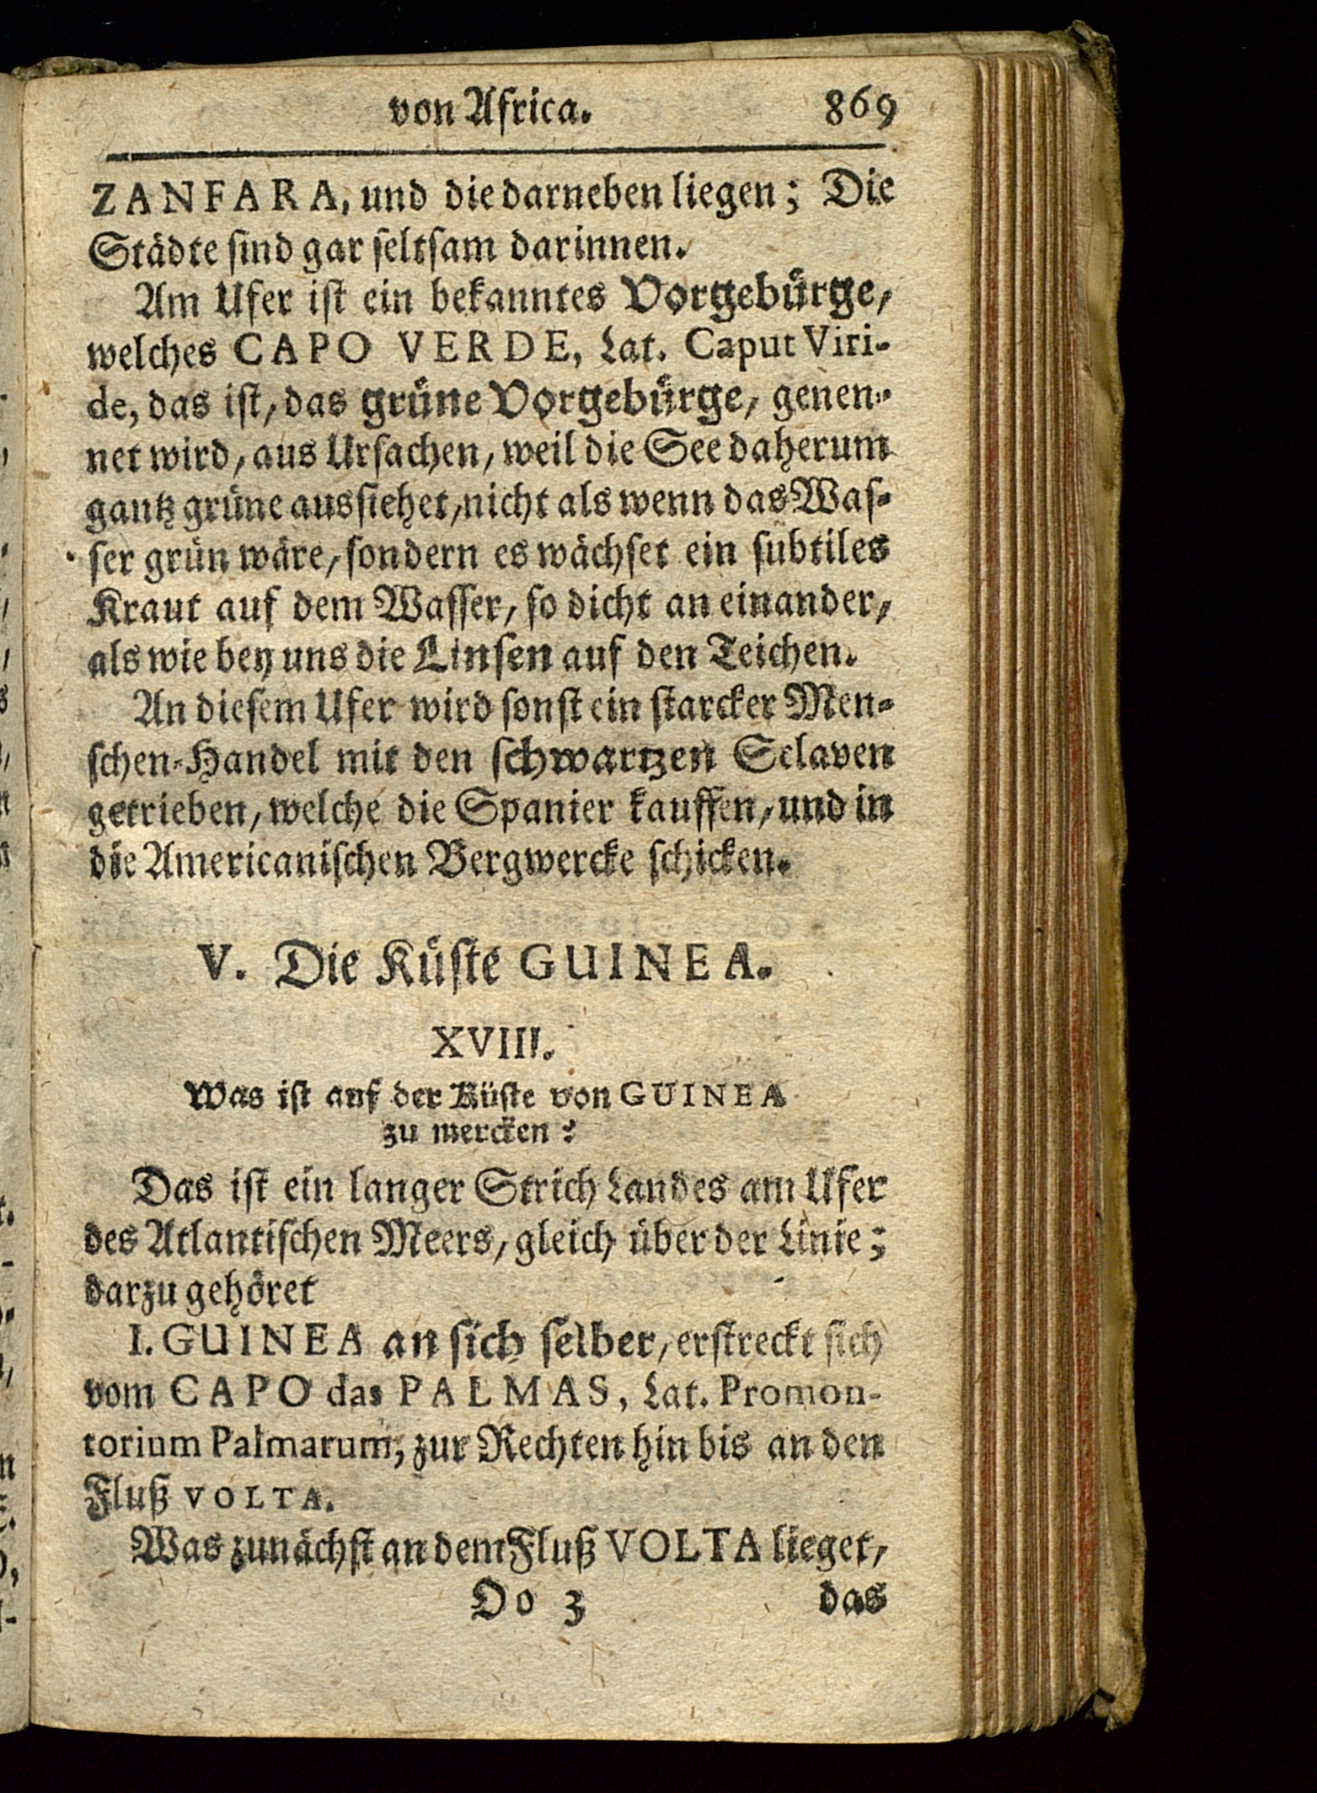 von Africa. 869
ZANFARA, und die darneben liegen; Die
Städte sind gar seltsam darinnen.
Am Ufer ist ein bekanntes Vorgebürge,
welches CAPO VERDE, Lat. Caput Viri-
de, das ist, das grüne Vorgebürge, genen-
net wird, aus Ursachen, weil die See daherum
gantz grüne aussiehet, nicht als wenn das Was-
ser grün wäre, sondern es wächset ein subtiles
Kraut auf dem Wasser, so dicht an einander,
als wie bey uns die Linsen auf den Teichen.
An diesem Ufer wird sonst ein starcker Men-
schen-Handel mit den schwartzen Sclaven
getrieben, welche die Spanier kauffen, und in
die Americanischen Bergwercke schicken.
V. Die Küste GUINEA.
XVIII.
Was ist auf der Küste von GUINEA
zu mercken?
Das ist ein langer Strich Landes am Ufer
des Atlantischen Meers, gleich über der Linie;
darzu gehöret
I. GUINEA an sich selber, erstreckt sich
vom CAPO das PALMAS, Lat. Promon-
torium Palmarum, zur Rechten hin bis an den
Fluß VOLTA.
Was zunächst an dem Fluß VOLTA lieget,
Oo 3 das